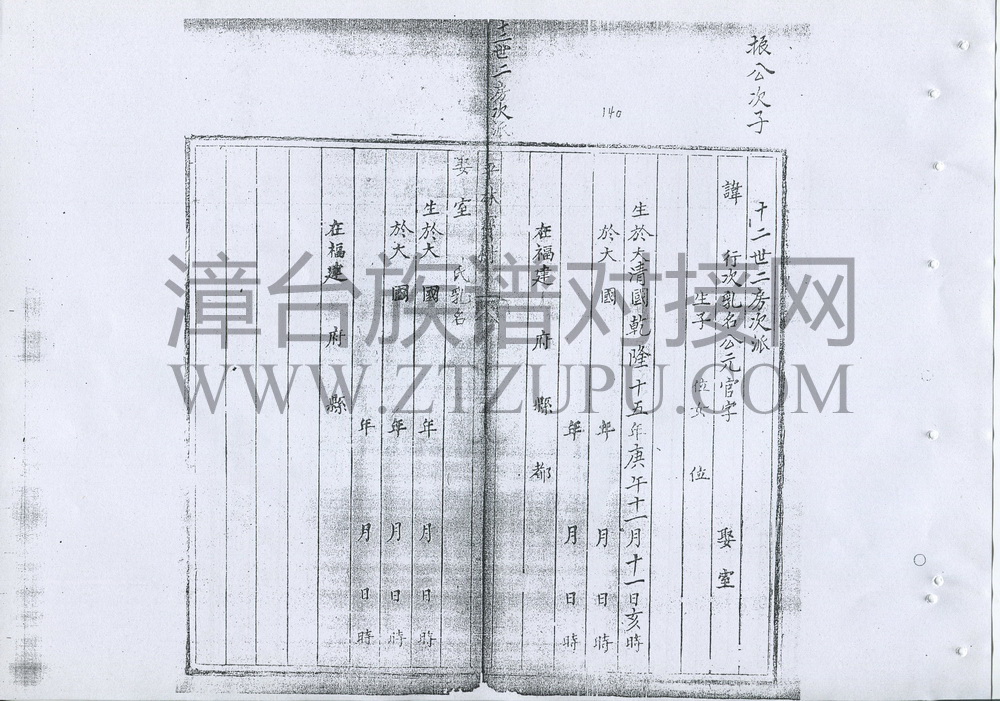 振公次子
140
十二世二房次派
諱 行次乳名公元官字 娶室
生子 位女 位
生於大清國乾隆十五年庚午十一月十一日亥時
於大 國 年 月 日 時
年 月 日 時
在福建 府 縣 都
十二世二房次派
娶室 氏乳名
生於大 國 年 月 日 時
於大 國 年 月 日 時
年 月 日 時
在福建 府 縣
漳台族谱对接网
WWW.ZTZUPU.COM